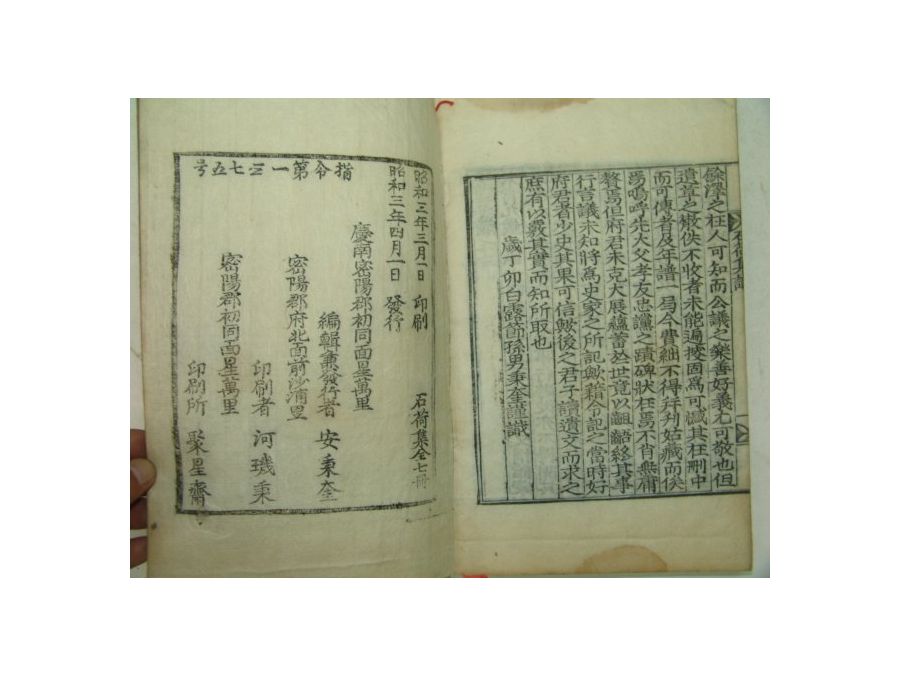 僉澤之在人可知而公議之樂善好義尤可敬也但
遺章之散佚不收者未能遍搜固爲可憾其在刪中
而可傳者及年譜一局今費絀不得拜刋姑藏而俟
焉嗚呼先大父孝友忠讜之蹟碑狀在焉不肖無庸
贅焉但府君未克大展蘊蓄於世竟以齟齬終其事
行言議未知將爲史家之所記歟籍令記之當時好
府君者少史其果可信歟後之君子讀遺文而求之
庶有以覈其實而知所取也
歲丁卯白露節孫男秉奎謹識
指令第一三七五号
昭和三年三月一日 印刷
昭和三年四月一日 發行
石荷集全七冊
慶南密陽郡初同面星萬里
編輯兼發行者 安秉奎
密陽郡府北面前沙浦里
印刷者 河璣秉
密陽郡初同面星萬里
印刷所 聚星齋